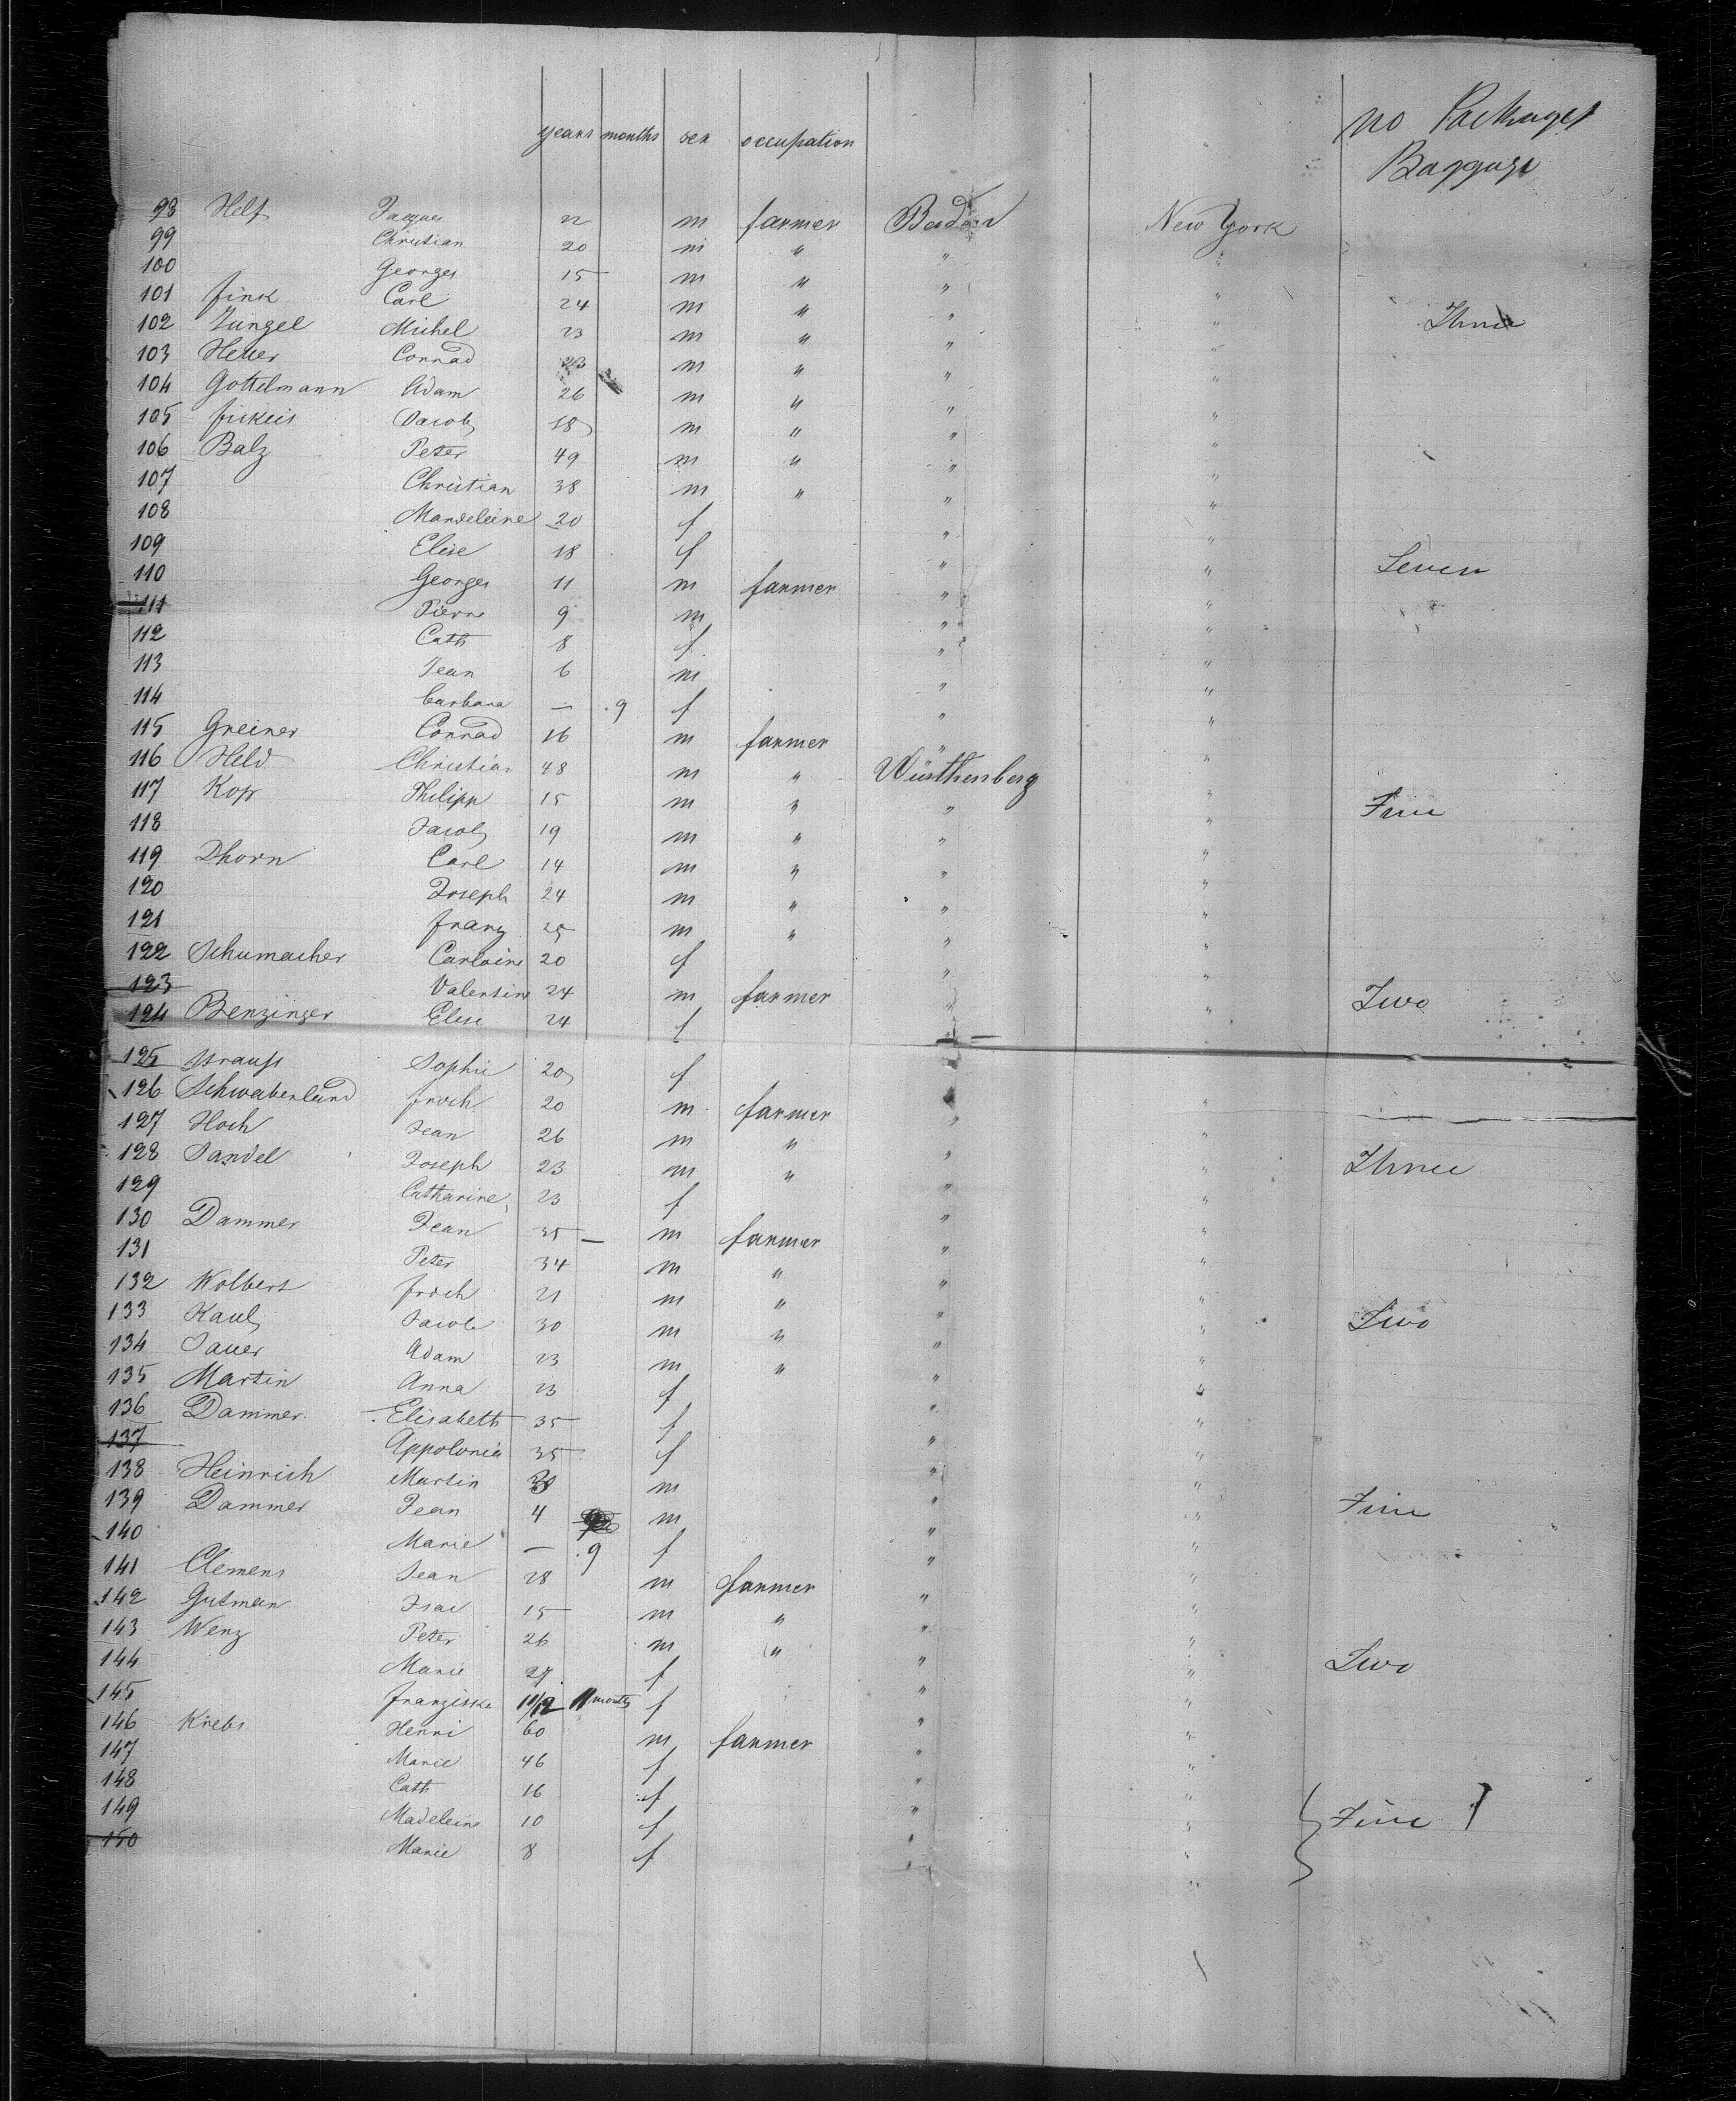 years months sex occupation no Packages
Baggage
98 Helf Jacques 22 m farmer Baden New York
99 Christian 20 m " " "
100 Georges 15 m " " "
101 fink Carl 24 m " " " Three
102 Jungel Michel 23 m " " "
103 Heuer Conrad 23 m " " "
104 Gottelmann Adam 26 m " " "
105 Jacob 18 m " " "
106 Balz Peter 49 m " " "
107 Christian 38 m " " "
108 Mandeleine 20 f " "
109 Elise 18 f " " Seven
110 Georges 11 m farmer " "
111 Pierre 9 m " "
112 Cath 8 f " "
113 Jean 6 m " "
114 barbara — 9 f " "
115 Greiner Conrad 16 m farmer " "
116 Held Christian 48 m " Würthenberg "
117 Kop Philipp 15 m " " " Five
118 Jacob 19 m " " "
119 Dhorn Carl 14 m " " "
120 Joseph 24 m " " "
121 franz 25 m " " "
122 Schumacher Carloine 20 f " "
123 Valentine 24 m farmer " " Two
124 Benzinger Elise 24 f "
125 Strauss Sophie 20 f
126 Schwabenland froch 20 m farmer " "
127 Hoch Jean 26 m " " "
128 Sandel Joseph 23 m " " " Three
129 Catharine 23 f " "
130 Dammer Jean 35 — m farmer " "
131 Peter 34 m " " "
132 Wolbert froch 21 m " " "
133 Kaul Jacob 30 m " " " Two
134 Sauer Adam 23 m " " "
135 Martin Anna 23 f " "
136 Dammer Elisabeth 35 f " "
137 Appolonia 35 f " "
138 Heinrich Martin 30 m " "
139 Dammer Jean 4 m " " Five
140 Marie — 9 f " "
141 Clemens Jean 28 m farmer " "
142 Gutman Isac 15 m " " "
143 Wenz Peter 26 m " " "
144 Marie 27 f " " Two
145 franziska 11/12 11 months f " "
146 Krebs Henri 60 m farmer " "
147 Marie 46 f " "
148 Cath 16 f " "
149 Madeleine 10 f " " Five
150 Marie 8 f " "